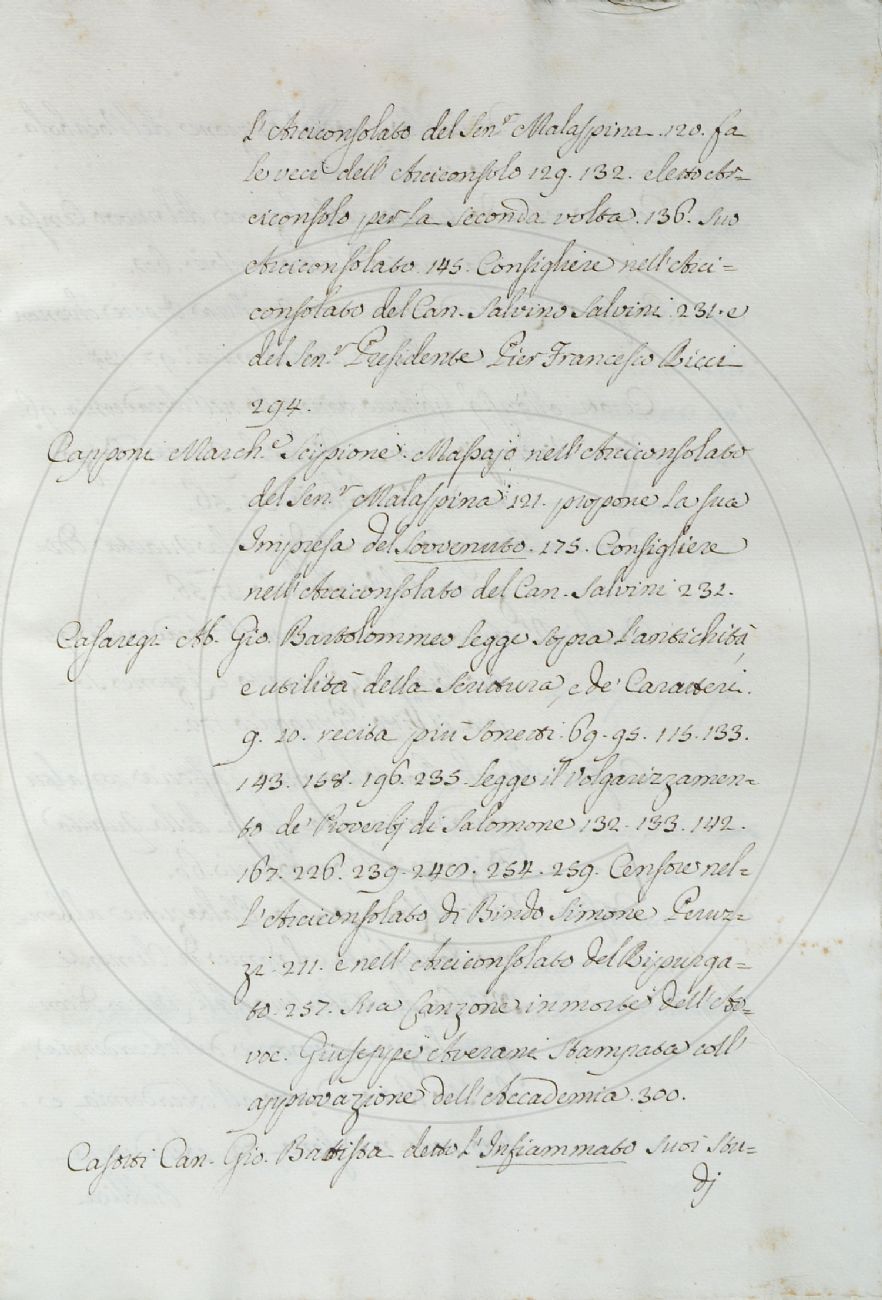 l'Arciconsolato del Sen.r Malaspina. 120. fa
le veci dell'Arciconsolo 129. 132. eletto Ar=
ciconsolo per la seconda volta. 136. suo
Arciconsolato. 145. Consigliere nell'Arci=
consolato del Can. Salvino Salvini 231. e
del Sen.r Presidente Pier Francesco Ricci
294.
Capponi March.e Scipione. Massajo nell'Arciconsolato
del Sen.r Malaspina 121. propone la sua
Impresa del Sovvenuto. 175. Consigliere
nell'Arciconsolato del Can. Salvini 231.
Casaregi Ab. Gio. Bartolommeo legge sopra l'antichità,
e utilità della Scrittura, e de' Caratteri.
9. 20. recita più Sonetti. 69. 95. 115. 133.
143. 158. 196. 235. legge il Volgarizzamen=
to de' Proverbj di Salomone 132. 133. 142.
167. 226. 239. 240. 254. 259. Censore nel=
l'Arciconsolato di Bindo Simone Peruz=
zi. 211. e nell'Arciconsolato del Ripurga=
to. 257. Sua Canzone in morte dell'Av=
voc. Giuseppe Averani stampata coll'
approvazione dell'Accademia. 300.
Casotti Can. Gio. Battista detto l'Infiammato suoi stu=
dj